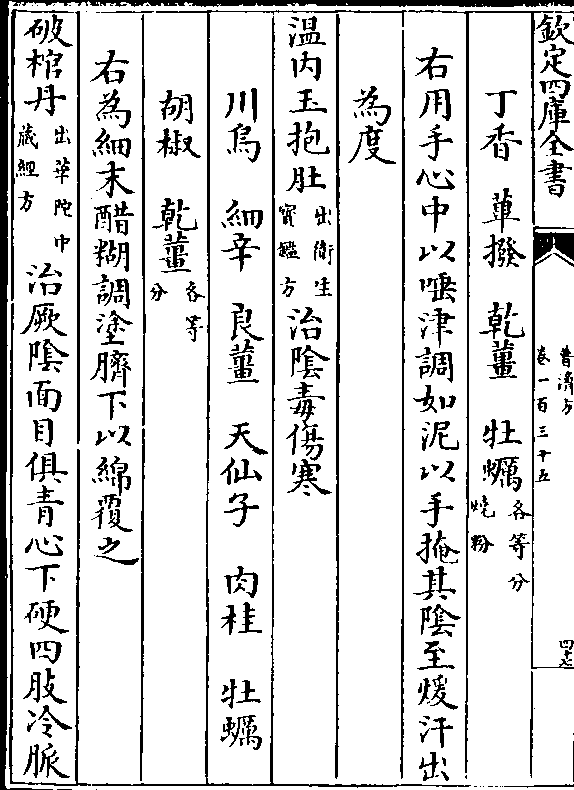 欽定四庫全書
普濟方
卷一百三十五
四十七
丁香 蓽撥 乾薑 牡蠣各等分燒粉
右用手心中以唾津調如泥以手掩其陰至煖汗出
為度
温内玉抱肚出衛生寳鑑方治陰毒傷寒
川烏 細辛 良薑 天仙子 肉桂 牡蠣
胡椒 乾薑各等分
右為細末醋糊調塗臍下以綿覆之
破棺丹出華陀中藏經方治厥陰面目俱青心下硬四肢冷脈